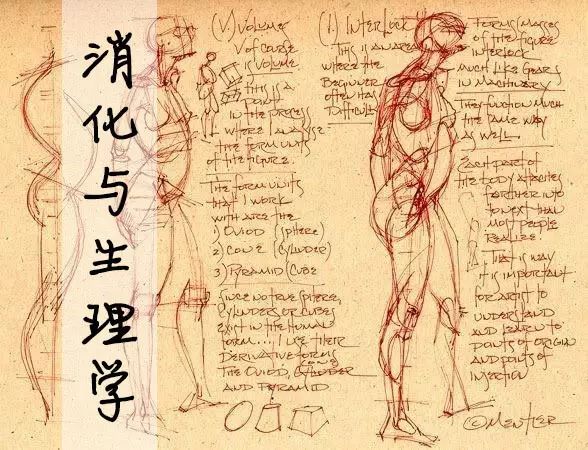 消化与生理学
(V.) VOLUMES
V OF COURSE
IS VOLUME.
THIS IS A
POINT
IN THE PROCESS
WHERE I ANALYSE
THE FORM UNITS
OF THE FIGURE.
THE FORM UNITS
THAT I WORK
WITH ARE THE
1) OVIOD (SPHERE)
2) CONE (CYLINDER)
3) PYRAMID (CUBE
SINCE NO TRUE SPHERE,
CYLINDERS OR CUBES
EXIST IN THE HUMAN
FORM.... I USE THEIR
DERIVATIVE FORMS
THE OVIOD, CYLINDER
AND PYRAMID
(I.) INTERLOCK
THIS IS AN AREA
WHERE THE
BEGINNER
OFTEN HAS
DIFFICULTY
FORMS/MASSES
OF THE FIGURE
INTERLOCK
MUCH LIKE GEARS
IN MACHINERY
THEY FUNCTION MUCH
THE SAME WAY
AS WELL.
EACH PART OF
THE BODY ATTACHES
FARTHER INTO
TO NEXT THAN
MOST PEOPLE
REALIZE.
THIS IS WAY
IT IS IMPORTANT
FOR ARTIST TO
UNDERSTAND
AND LEARN TO
POINTS OF ORIGIN
AND POINTS OF
INSERTION
©MENTLER